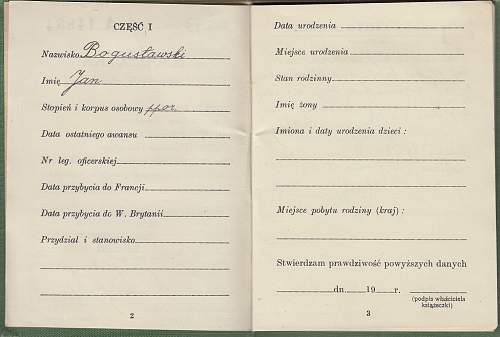 CZĘŚĆ I
Nazwisko Bogusławski
Imię Jan
Stopień i korpus osobowy ppor
Data ostatniego awansu
Nr leg. oficerskiej
Data przybycia do Francji
Data przybycia do W. Brytanii
Przydział i stanowisko
2
Data urodzenia
Miejsce urodzenia
Stan rodzinny
Imię żony
Imiona i daty urodzenia dzieci :
Miejsce pobytu rodziny (kraj) :
Stwierdzam prawdziwość powyższych danych
dn 19 r.
(podpis właściciela
książeczki)
3